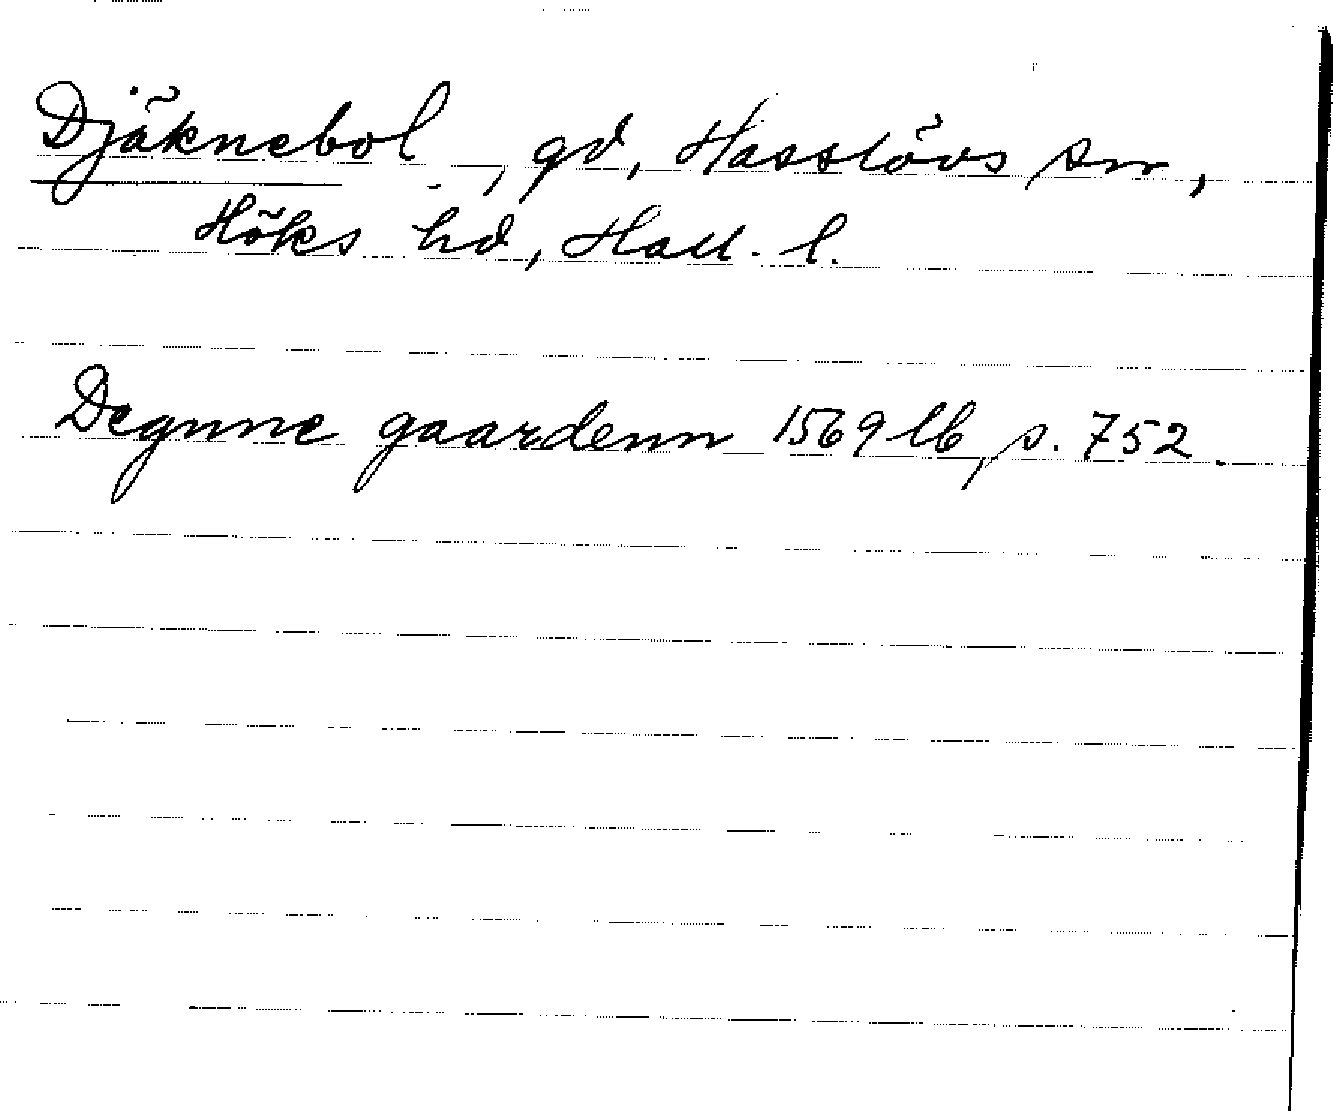 Djäknebol, gd, Hasslövs sn,
Höks hd, Hall. l.
Degnne gaardenn 1569 lb, s. 752.